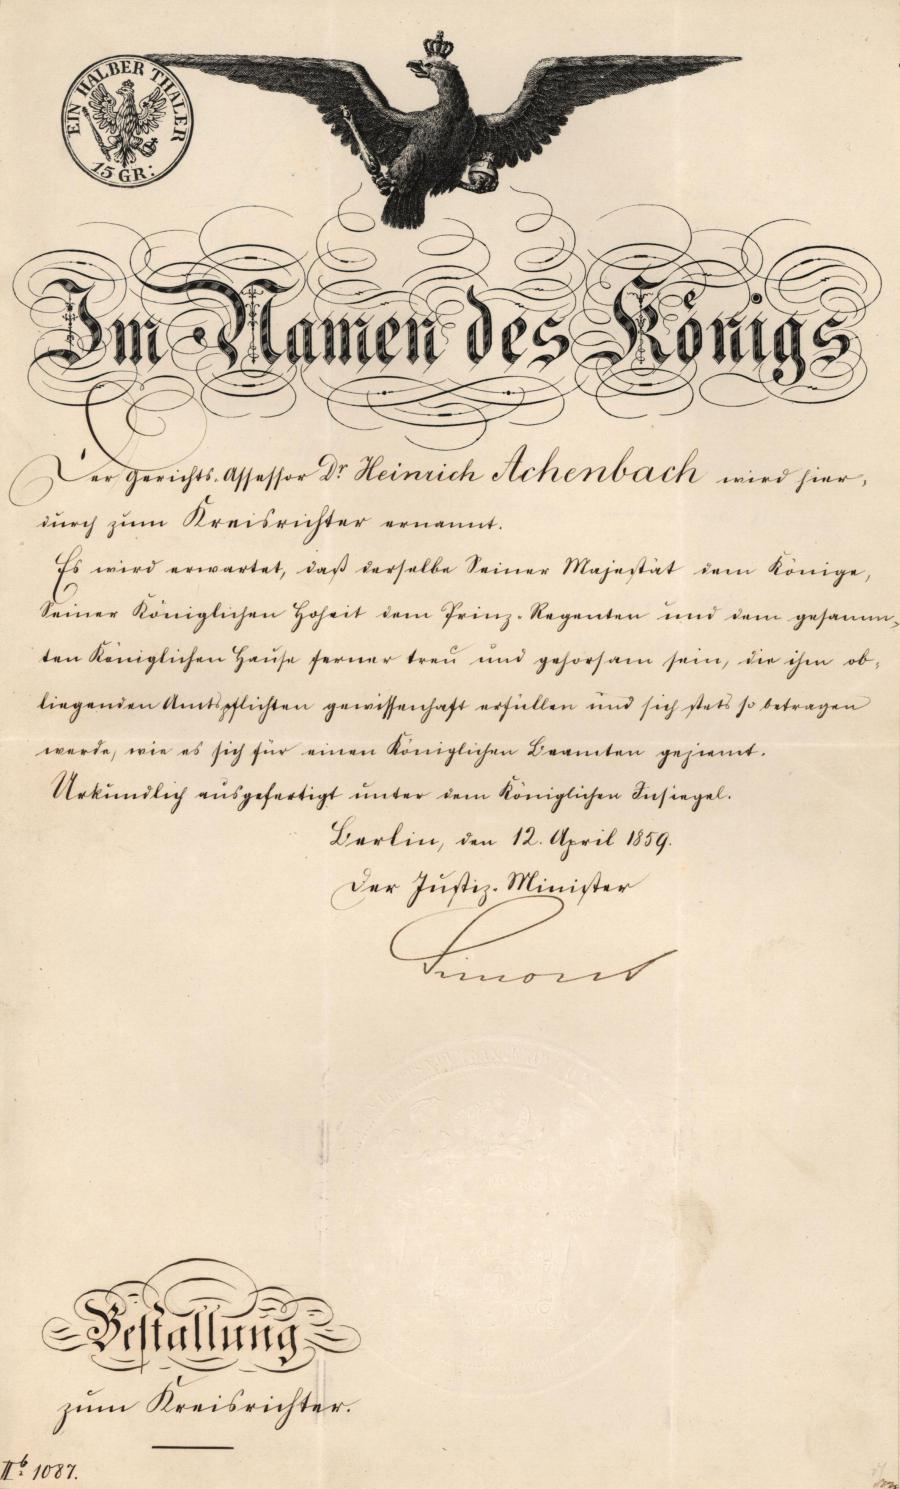 EIN HALBER THALER
15 GR:
Im Namen des Königs
Der Gerichts-Assessor Dr Heinrich Achenbach wird hier-
durch zum Kreisrichter ernannt.
Es wird erwartet, daß derselbe Seiner Majestät dem Könige,
Seiner Königlichen Hoheit dem Prinz-Regenten und dem gesamm-
ten Königlichen Hause ferner treu und gehorsam sein, die ihm ob-
liegenden Amtspflichten gewissenhaft erfüllen und sich stets so betragen
werde, wie es sich für einen Königlichen Beamten geziemt.
Urkundlich ausgefertigt unter dem Königlichen Insiegel.
Berlin, den 12. April 1859.
Der Justiz-Minister
Simons
Bestallung
zum Kreisrichter.
IIb 1087.